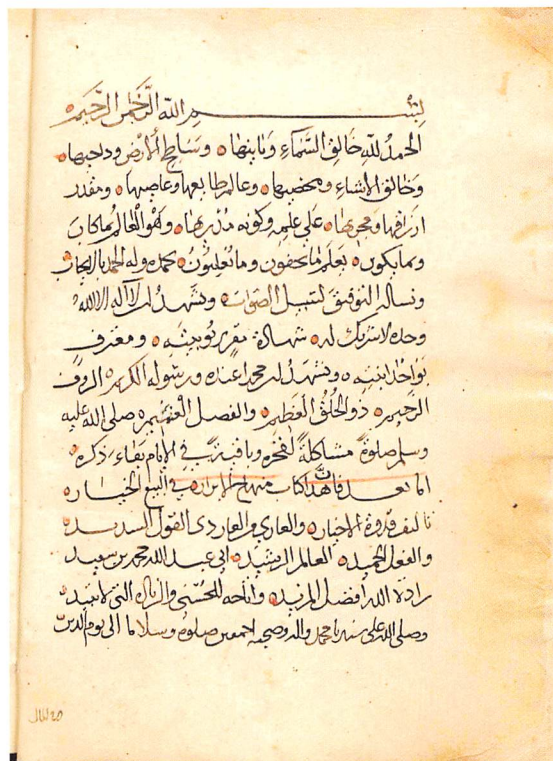 بسم الله الرحمن الرحيم
الحمد لله خالق السماء وبانيها وساطح الأرض وداحيها
وخالق الاشياء ومحصيها وعالم طايعها وعاصيها ومقدر
ارزاقها ومجريها على علمه وكونه مدبرها وهو العالم بما كان
وبما يكون يعلم ما تخفون وما تعلنون نحمده وله الحمد بالايجاب
ونساله التوفيق لسبيل الصواب ونشهد ان لا اله الا الله
وحده لا شريك له شهادة مقر بربوبيته ومعترف
بوحدانيته ونشهد ان محمدا عبده ورسوله الكريم الروف
الرحيم ذو الخلق العظيم والفضل العميم صلى الله عليه
وسلم صلوة مشاكلة لفخره وباقية في الايام بقاء ذكره
اما بعد فان هذا كتاب منهاج الابرار في البيع الخيار
تاليف قدوة الاخيار والعاري والعار ذى القول السديد
والفعل الحميد العالم الرشيد ابى عبد الله محمد بن سعيد
زاده الله افضل المزيد واتاحه للحسنى والزيادة التى لا تبيد
وصلى الله على سيدنا محمد واله وصحبه اجمعين صلوة وسلاما الى يوم الدين